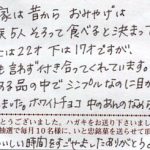 家は昔から おみやげは
族5人そろって食べると決まって
には22才 下は17才ですが、
も言わず付き合ってくれています。
る品の中で シンプルなのに目が
まった。ホワイトチョコ 中のあんのなんら
とうございました。ハガキをお送り下さいまし
抽選で毎月10名様に、いと忠銘菓を送らせて
いしい時間をすごせました。ありがとう。